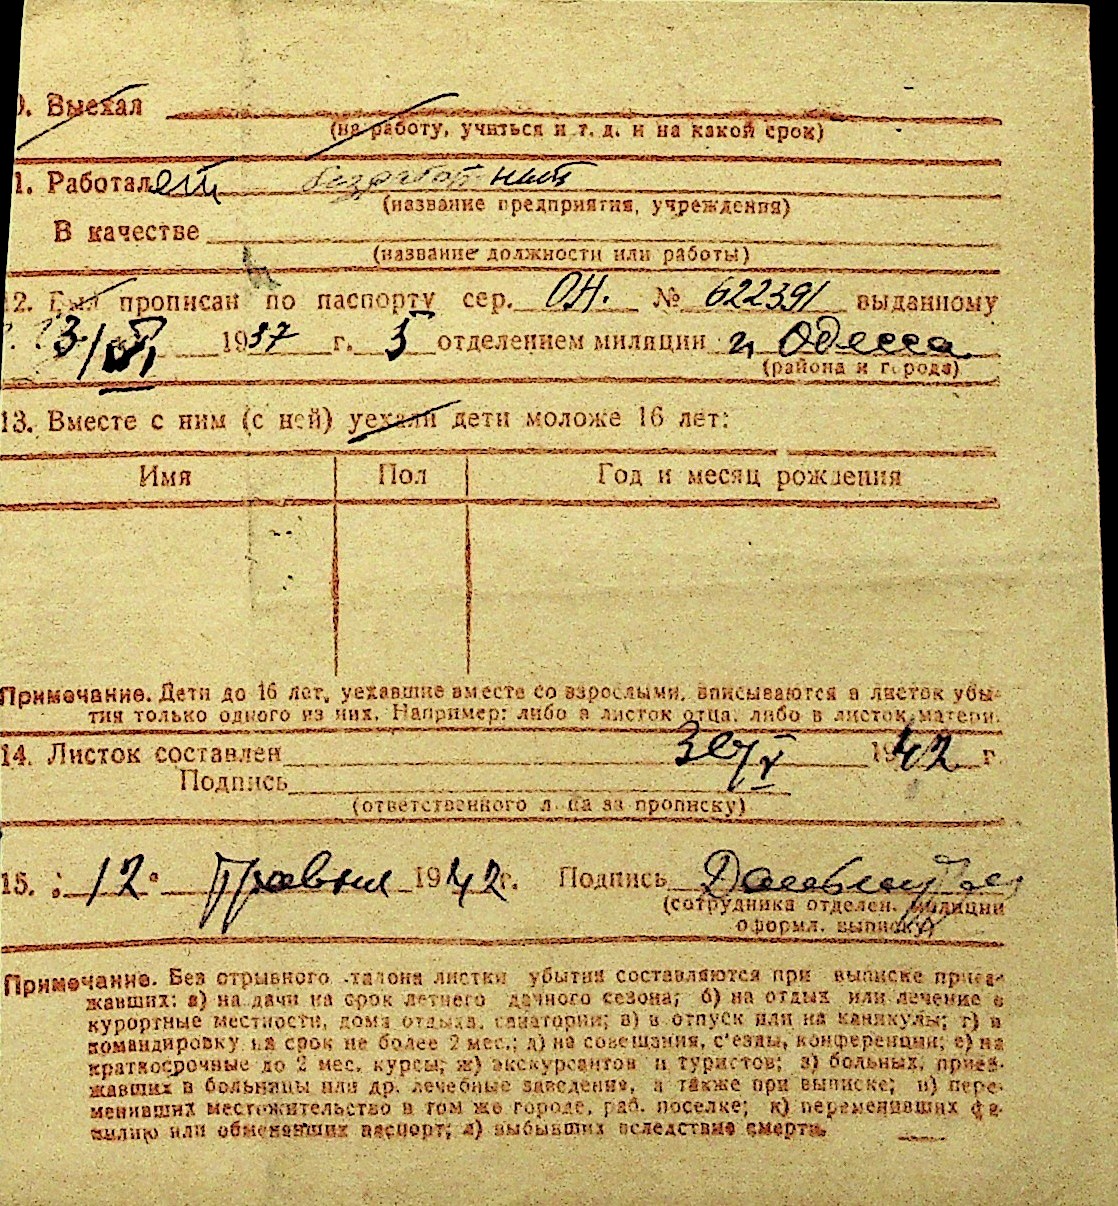 0. Выехал
(на работу, учиться и т. д. и на какой срок)
1. Работает безработный
(название предприятия, учреждения)
В качестве
(название должности или работы)
12. Был прописан по паспорту сер. ОН. № 622391 выданному
3/VI 1937 г. 5 отделением милиции г. Одесса
(района и города)
13. Вместе с ним (с ней) уехали дети моложе 16 лет:
Имя Пол Год и месяц рождения
Примечание. Дети до 16 лет, уехавшие вместе со взрослыми, вписываются в листок убы-
тия только одного из них. Например: либо в листок отца, либо в листок матери.
14. Листок составлен V 1942 г.
Подпись
(ответственного лица за прописку)
15. 12 Травня 1942 г. Подпись
(сотрудника отделен. милиции
оформл. выписку)
Примечание. Без отрывного талона листки убытия составляются при выписке приез-
жавших: а) на дачи на срок летнего дачного сезона; б) на отдых или лечение в
курортные местности, дома отдыха, санатории; в) в отпуск или на каникулы; г) в
командировку на срок не более 2 мес.; д) на совещания, с'езды, конференции; е) на
краткосрочные до 2 мес. курсы; ж) экскурсантов и туристов; з) больных, приез-
жавших в больницы или др. лечебные заведения, а также при выписке; и) пере-
менивших местожительство в том же городе, раб. поселке; к) переменивших фа-
милию или обменявших паспорт; л) выбывших вследствие смерти.